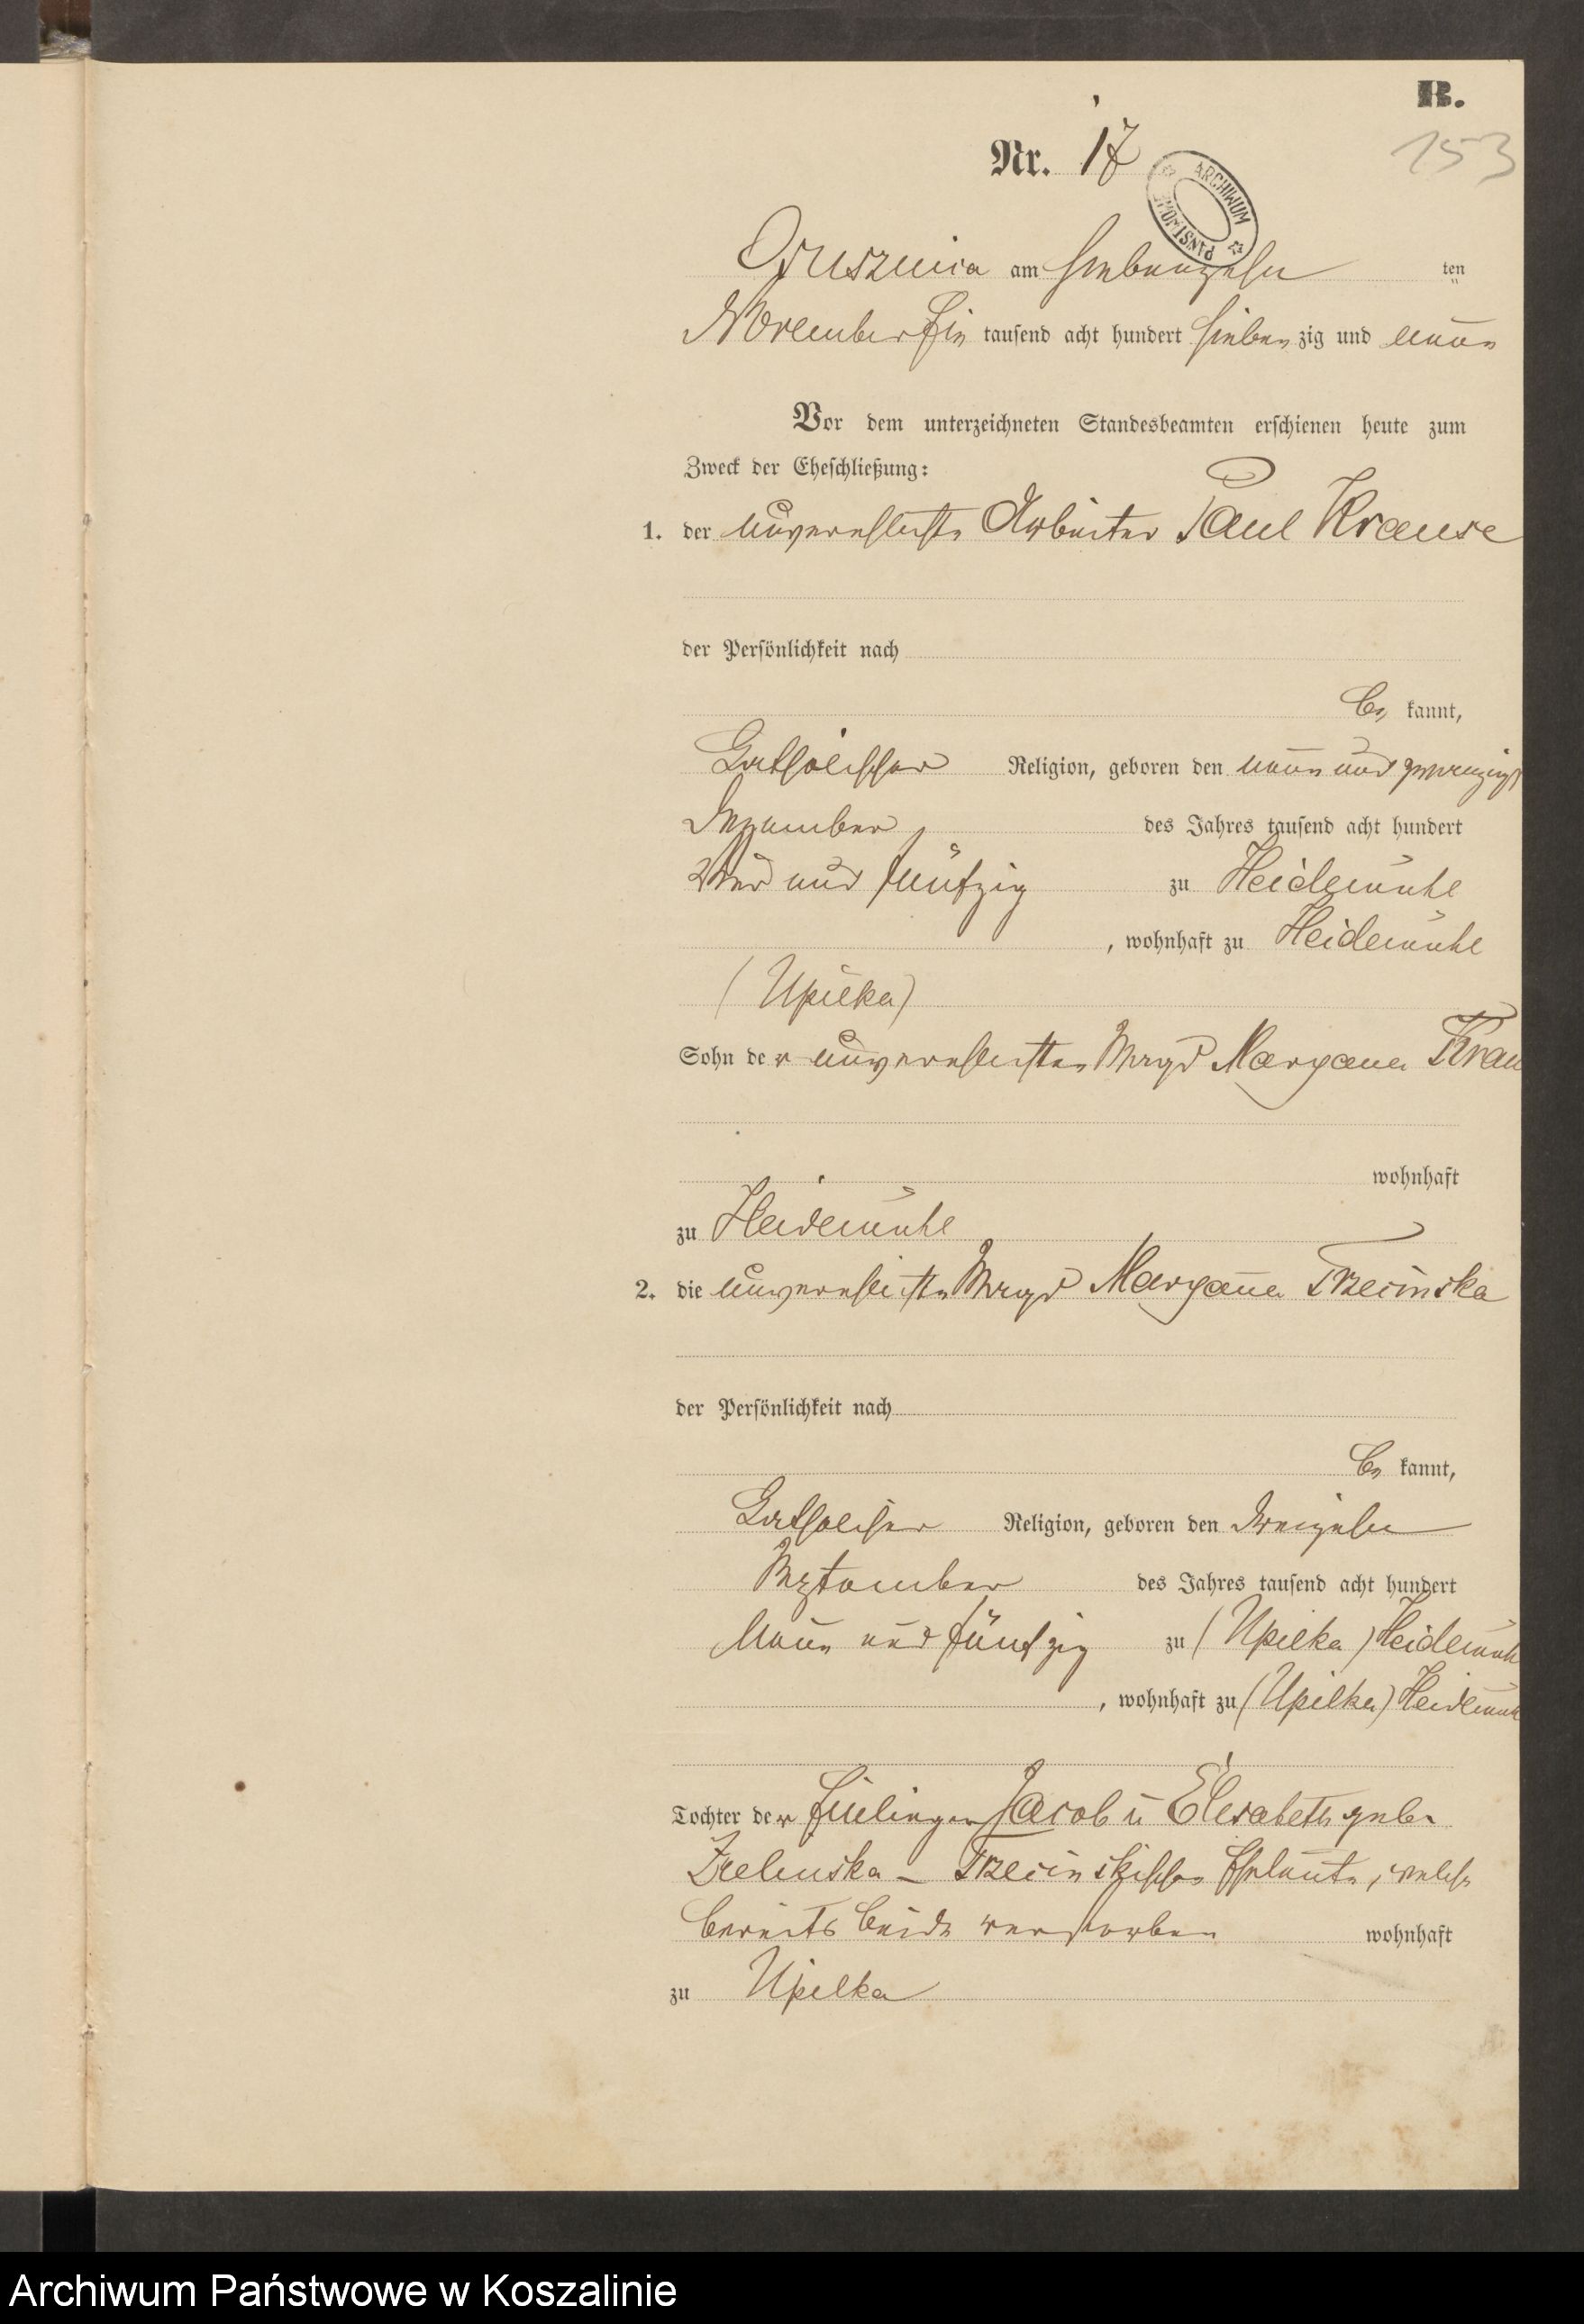 B.
Nr. 17
153
ARCHIWUM PAŃSTWOWE
Osuszniça am siebenzehn ten
November Ein tausend acht hundert sieben zig und neun
Vor dem unterzeichneten Standesbeamten erschienen heute zum
Zweck der Eheschließung:
1. der unverehlichte Arbeiter Paul Krause
der Persönlichkeit nach
be kannt,
Katholischer Religion, geboren den neun und zwanzigst
Dezember des Jahres tausend acht hundert
Vier und fünfzig zu Heidemühl
, wohnhaft zu Heidemühl
(Upilka)
Sohn der unverehlichten Magd Maryana Krau
wohnhaft
zu Heidemühl
2. die unverehlichte Magd Maryanna Trzecinska
der Persönlichkeit nach
be kannt,
Katholischer Religion, geboren den dreizehn
September des Jahres tausend acht hundert
Neun und fünfzig zu (Upilka) Heidemüh
, wohnhaft zu (Upilka) Heidemüh
Tochter der Jacob u Elisabeth geb
Zielinska - Trzecinskischen Eheleute, welche
bereits beide verstorben wohnhaft
zu Upilka
Archiwum Państwowe w Koszalinie